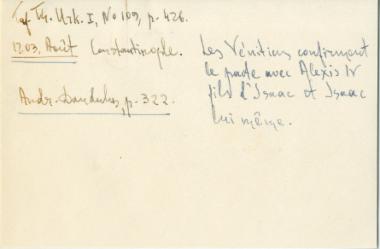 Taf. Th. Urk. I, No 109, p. 426.
1203. Août Constantinople.
Andr. Dandulus, p. 322.
Les Vénitiens confirment
le pacte avec Alexis IV
fils d'Isaac et Isaac
lui même.